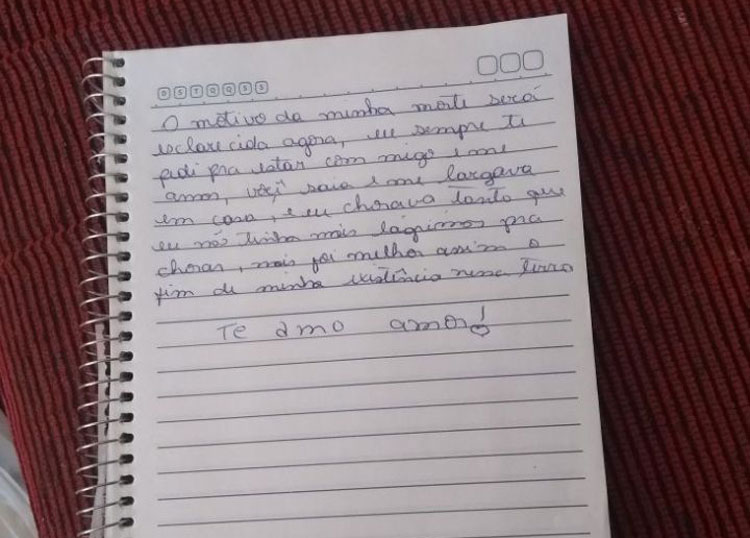 D S T Q Q S S
O motivo da minha morte será
esclarecida agora, eu sempre ti
pedi pra estar com migo e me
amar, voçê saia e me largava
em casa, e eu chorava tanto que
eu não tinha mais lágrimas pra
chorar, mais foi melhor assim o
fim de minha existência nessa terra
Te amo amor!